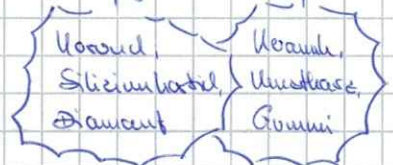 Korund,
Siliziumkarbid,
Diamant
Keramik,
Kunstharz,
Gummi